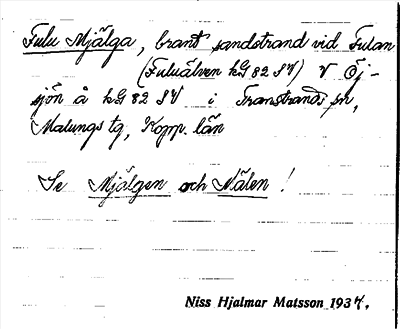 Fulu Mjälga, brant sandstrand vid Fulan
(Fuluälven kG 82 SV) V Öj-
sjön å kG 82 SV i Transtrands sn,
Malungs tg, Kopp. län
Se Mjälgen och Nälen!
Niss Hjalmar Matsson 1937.